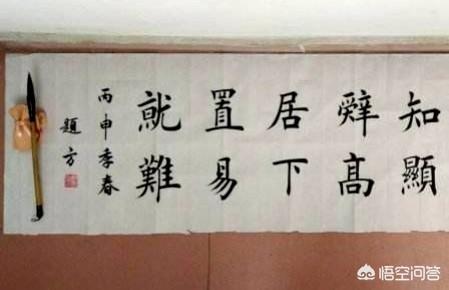 知顯
辤高
居下
置易
就難
丙申季春
題方
悟空问答